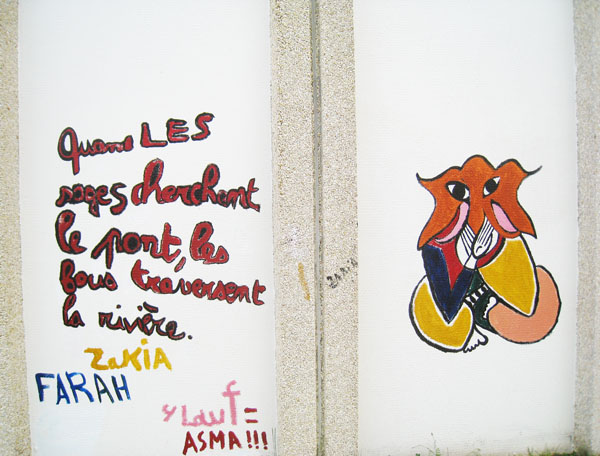 Quand LES
sages cherchent
le pont, les
fous traversent
la rivière.
ZaKiA
FARAH
ASMA!!!
ZAKIA